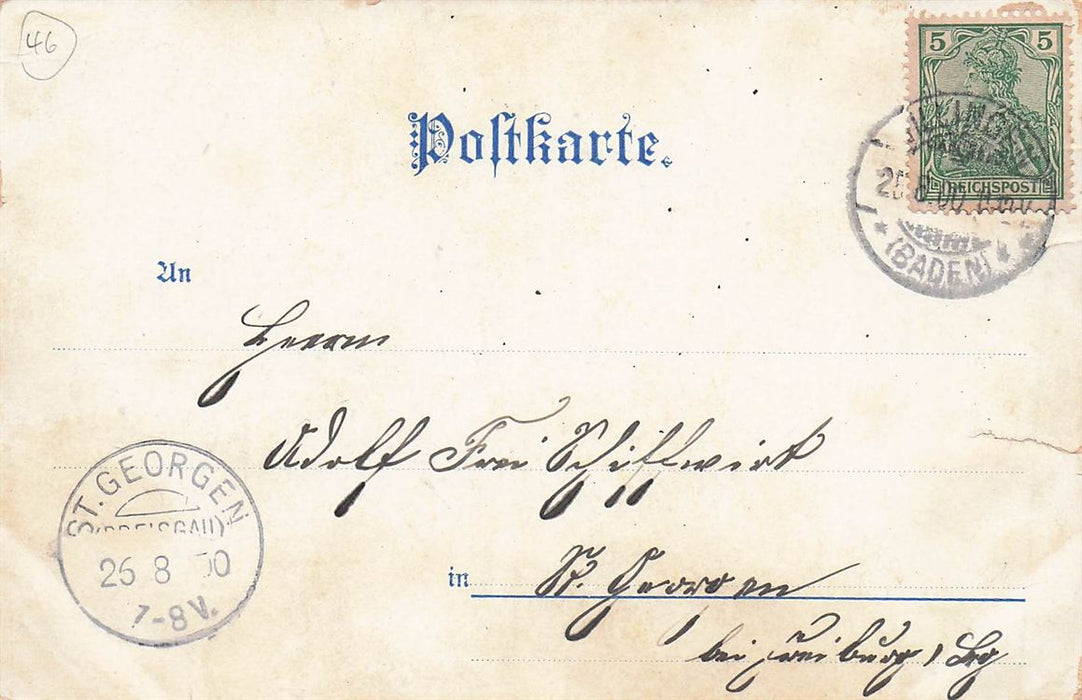 46
5 5
Postkarte.
REICHSPOST
25.8.00
(BADEN)
An
Herrn
Adolf Frei Schiffwirt
ST. GEORGEN
(BREISGAU)
26 8 00
7-8 V.
in St. Georgen
bei Freiburg